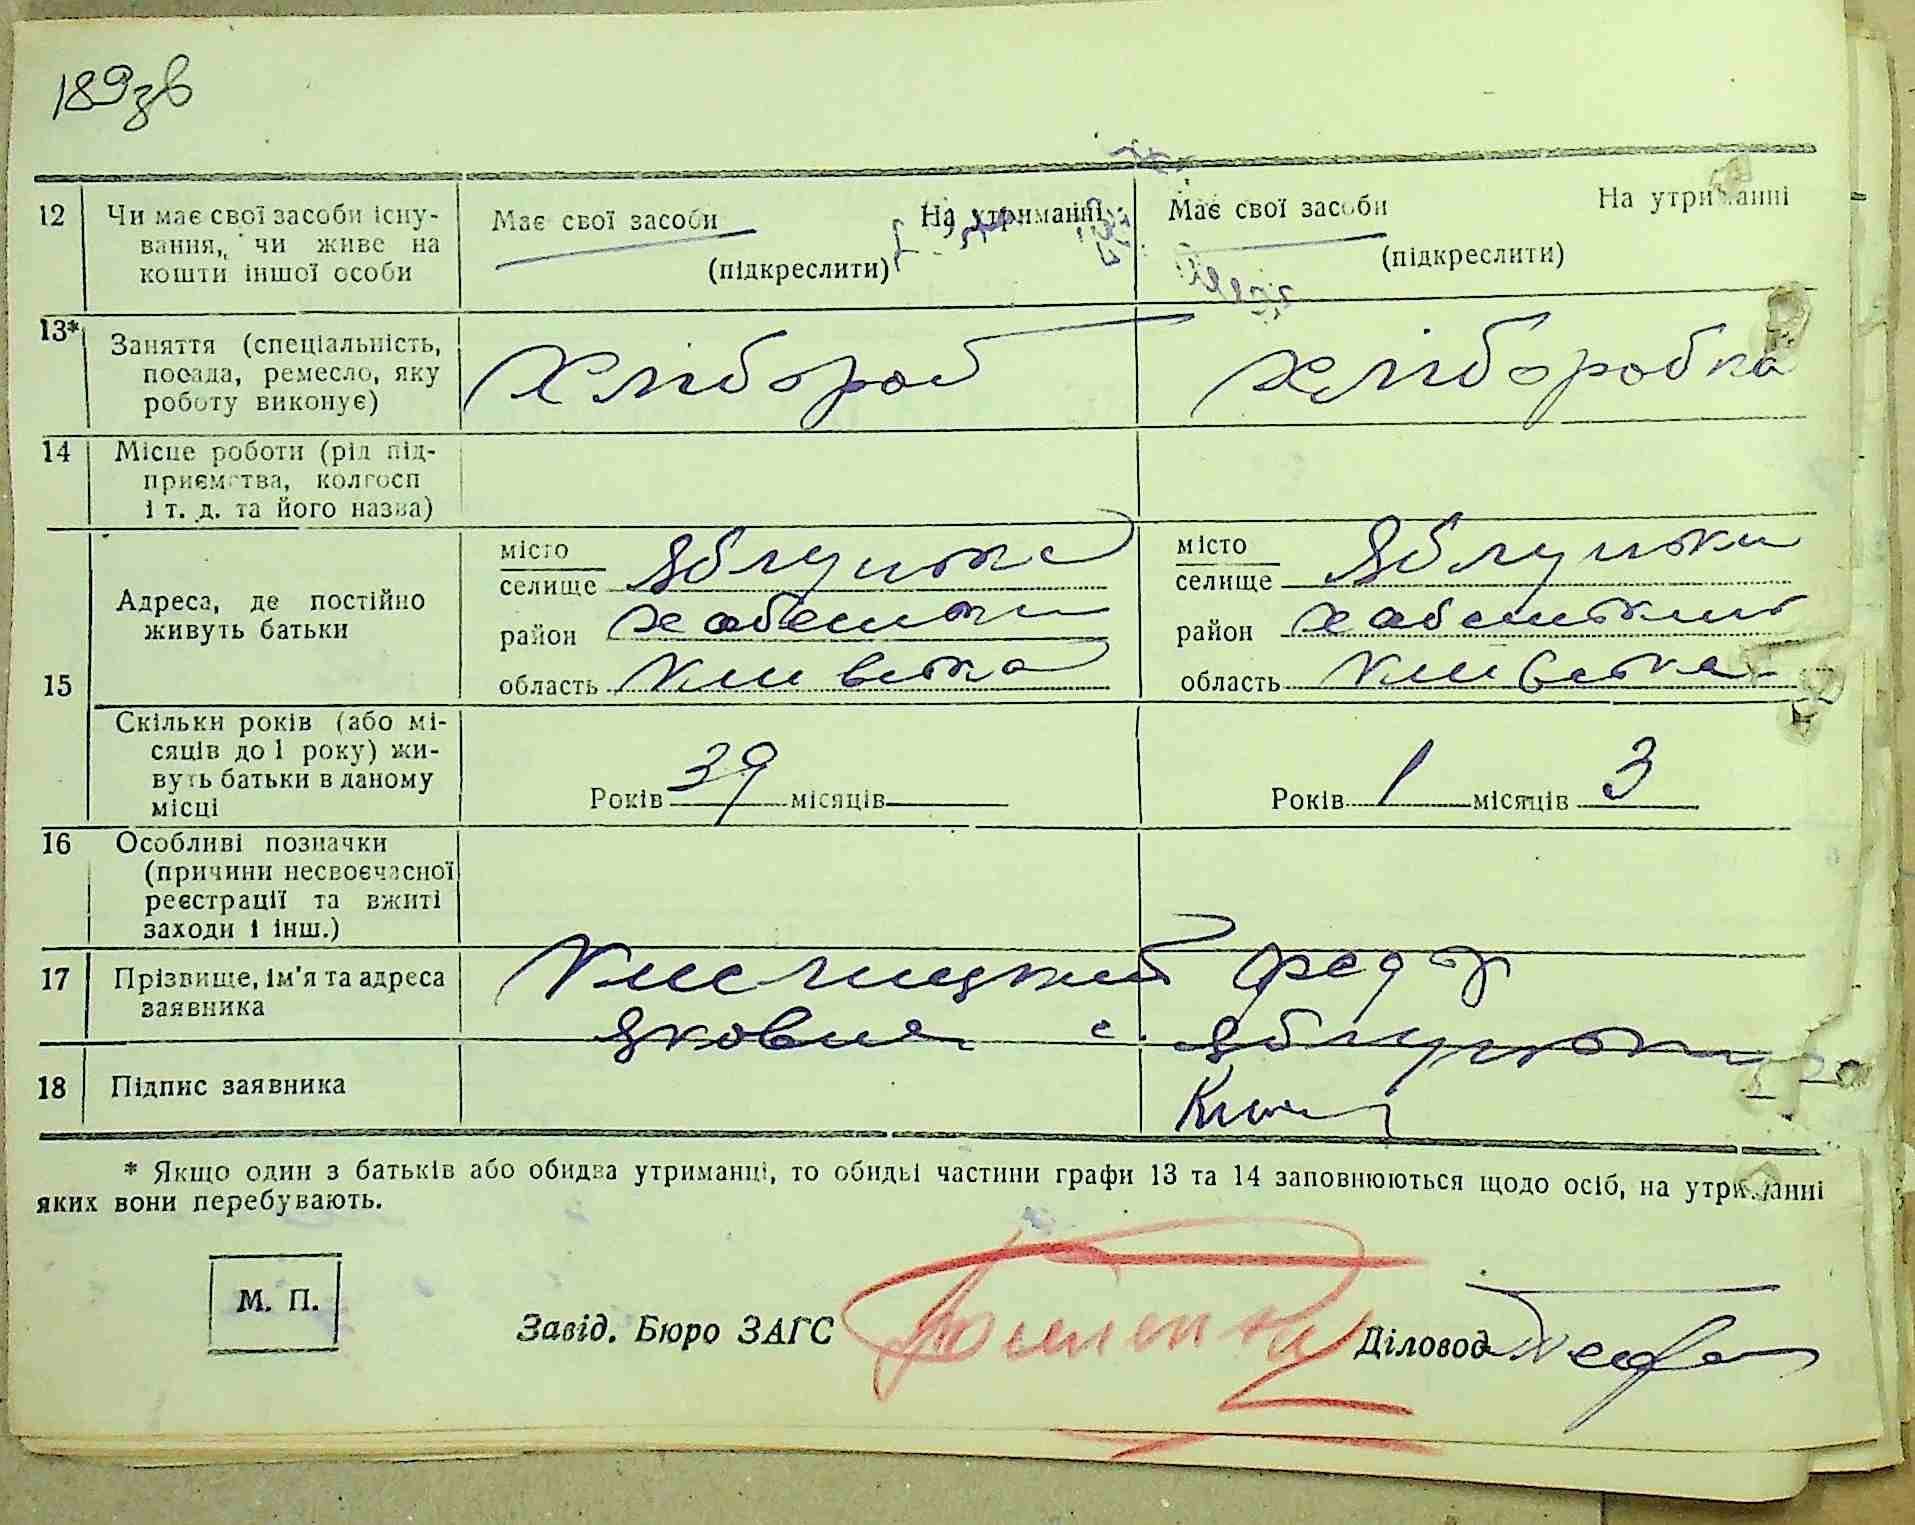 189зв
12 Чи має свої засоби існу-
вання, чи живе на
кошти іншої особи
Має свої засоби На утриманні
(підкреслити)
Має свої засоби На утриманні
(підкреслити)
13* Заняття (спеціальність,
посада, ремесло, яку
роботу виконує)
Хлібороб
Хліборобка
14 Місце роботи (рід під-
приємства, колгосп
і т. д. та його назва)
15
Адреса, де постійно
живуть батьки
місто
селище Яблунька
район Хабенськи
область Київська
місто
селище Яблунька
район Хабенський
область Київська
Скільки років (або мі-
сяців до 1 року) жи-
вуть батьки в даному
місці
Років 39 місяців
Років 1 місяців 3
16 Особливі позначки
(причини несвоєчасної
реєстрації та вжиті
заходи і інш.)
17 Прізвище, ім'я та адреса
заявника
Кислицкий Федор
Яковия с. Яблунька
18 Підпис заявника
* Якщо один з батьків або обидва утриманці, то обидві частини графи 13 та 14 заповнюються щодо осіб, на утриманні
яких вони перебувають.
М. П.
Завід. Бюро ЗАГС
Діловод